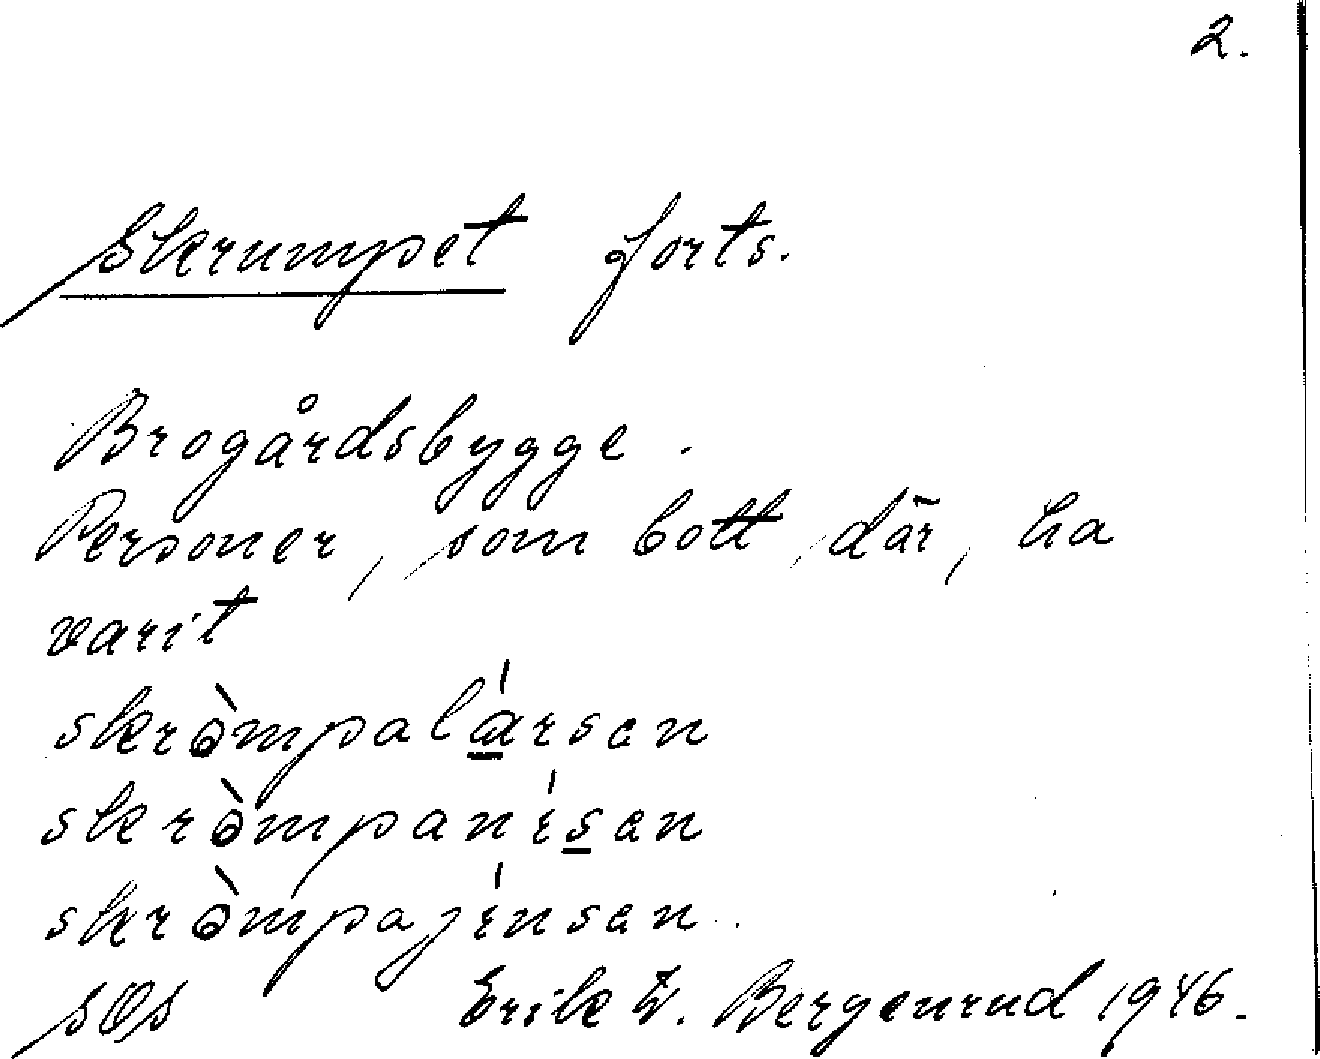 2.
Skrumpet forts.
Brogårdsbygge.
Personer, som bott där, ha
varit
skròmpalársen
skròmpanísen
skròmpajínsen.
Erik W. Bergenrud 1946.